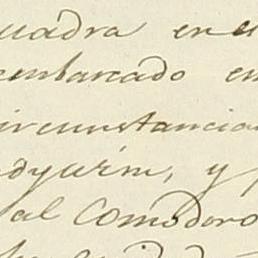 uadra en e
embarcado en
circunstancia
dyuím, y
al Comodoro